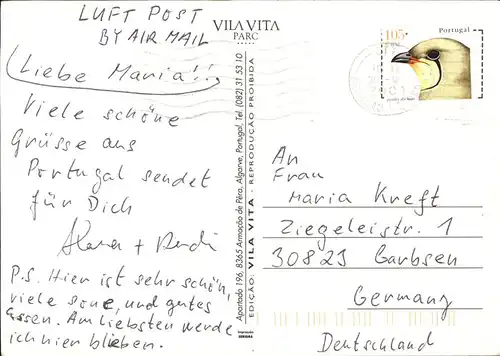 LUFT POST
BY AIR MAIL
Liebe Maria!!
Viele schöne
Grüsse aus
Portugal sendet
für Dich
P.S. Hier ist sehr schön,
viele sone, und gutes
Essen. Am liebsten werde
ich hier blieben.
VILA VITA
PARC
Apartado 196, 8365 Armação de Pêra, Algarve, Portugal, Tel (082) 31 53 10
EDIÇÃO: VILA VITA - REPRODUÇÃO PROIBIDA
105
Portugal
An
Frau
Maria Kreft
Ziegeleistr. 1
30823 Garbsen
Germany
Deutschland